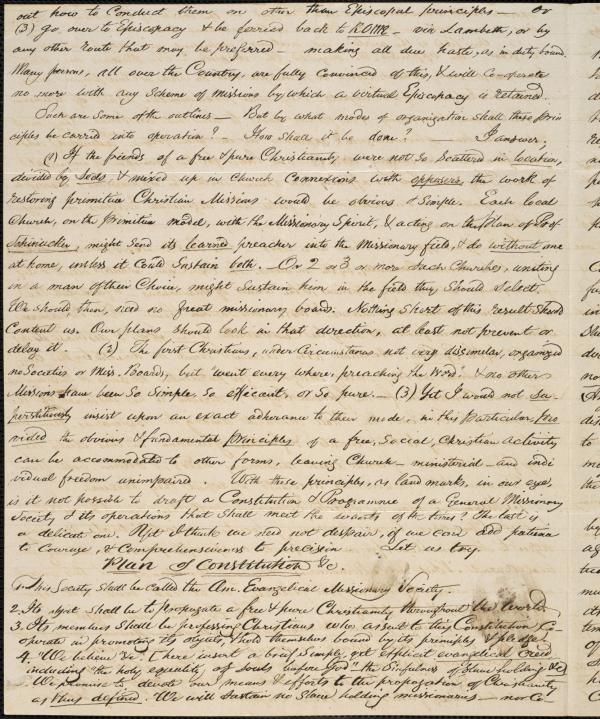 out how to Conduct them on other than Episcopal principles — or
(3) go over to Episcopacy & be ferried back to ROME — via Lambeth, or by
any other route that may be preferred — making all due haste, as in duty bound.
Many persons, all over the Country, are fully convinced of this, & will Co-operate
no more with any Scheme of missions by which a virtual Episcopacy is retained.
Such are Some of the outlines — But by what modes of organization shall these Prin
ciples be carried into operation? — How Shall it be done? — I answer;
(1) If the friends of a free & pure Christianity were not so Scattered in location,
divided by Sects & mixed up in Church Connexions with opposers, the work of
restoring primitive Christian Missions would be obvious & Simple. Each local
Church, on the Primitive model, with the Missionary Spirit, & acting on the Plan of Prof
might Send its learned preacher into the Missionary field, & do without one
at home, unless it Could Sustain both. Or 2 or 3 or more Such Churches, uniting
in a man of their Choice, might Sustain him in the field they Should Select.
We should then, need no great missionary boards. Nothing Short of this result Should
Content us. Our plans should look in that direction, at least not prevent or
delay it. (2) The first Christians, under Circumstances not very dissimilar, organized
no Societies or Miss. Boards, but "went every where, preaching the Word." & no other
Missions have been So Simple, So efficient, or So pure. — (3) Yet I would not Su-
perstitiously insist upon an exact adherance to their mode, in this Particular, Pro
vided the obvious & fundamental principles of a free, Social, Christian activity
can be accommodated to other forms, leaving Church — ministerial — and indi
vidual freedom unimpaired. With these principles, as land marks, in our eye,
is it not possible to draft a Constitution & Programme of a General Missionary
Society & its operations that shall meet the wants of the times? The task is
a delicate one. Yet I think we need not despair, if we can add patience
to Courage, & Comprehensiveness to precision Let us try.
Plan of Constitution &c.
1. This Society Shall be called the Am. Evangelical Missionary Society.
2. Its object Shall be to propagate a free & pure Christianity throughout the World.
3. Its members Shall be professing Christians who assent to this Constitution Co-
operate in promoting its objects, & hold themselves bound by its principles & pledges.
4. "We believe &c. (here insert a brief Simple, yet explicit evangelical Creed
including "the holy equality of Souls before God" "the Sinfulness of Slaveholding &c)
We promise to devote our means & efforts to the propagation of Christianity
as thus defined. We will Sustain no Slave holding missionaries — nor Co-